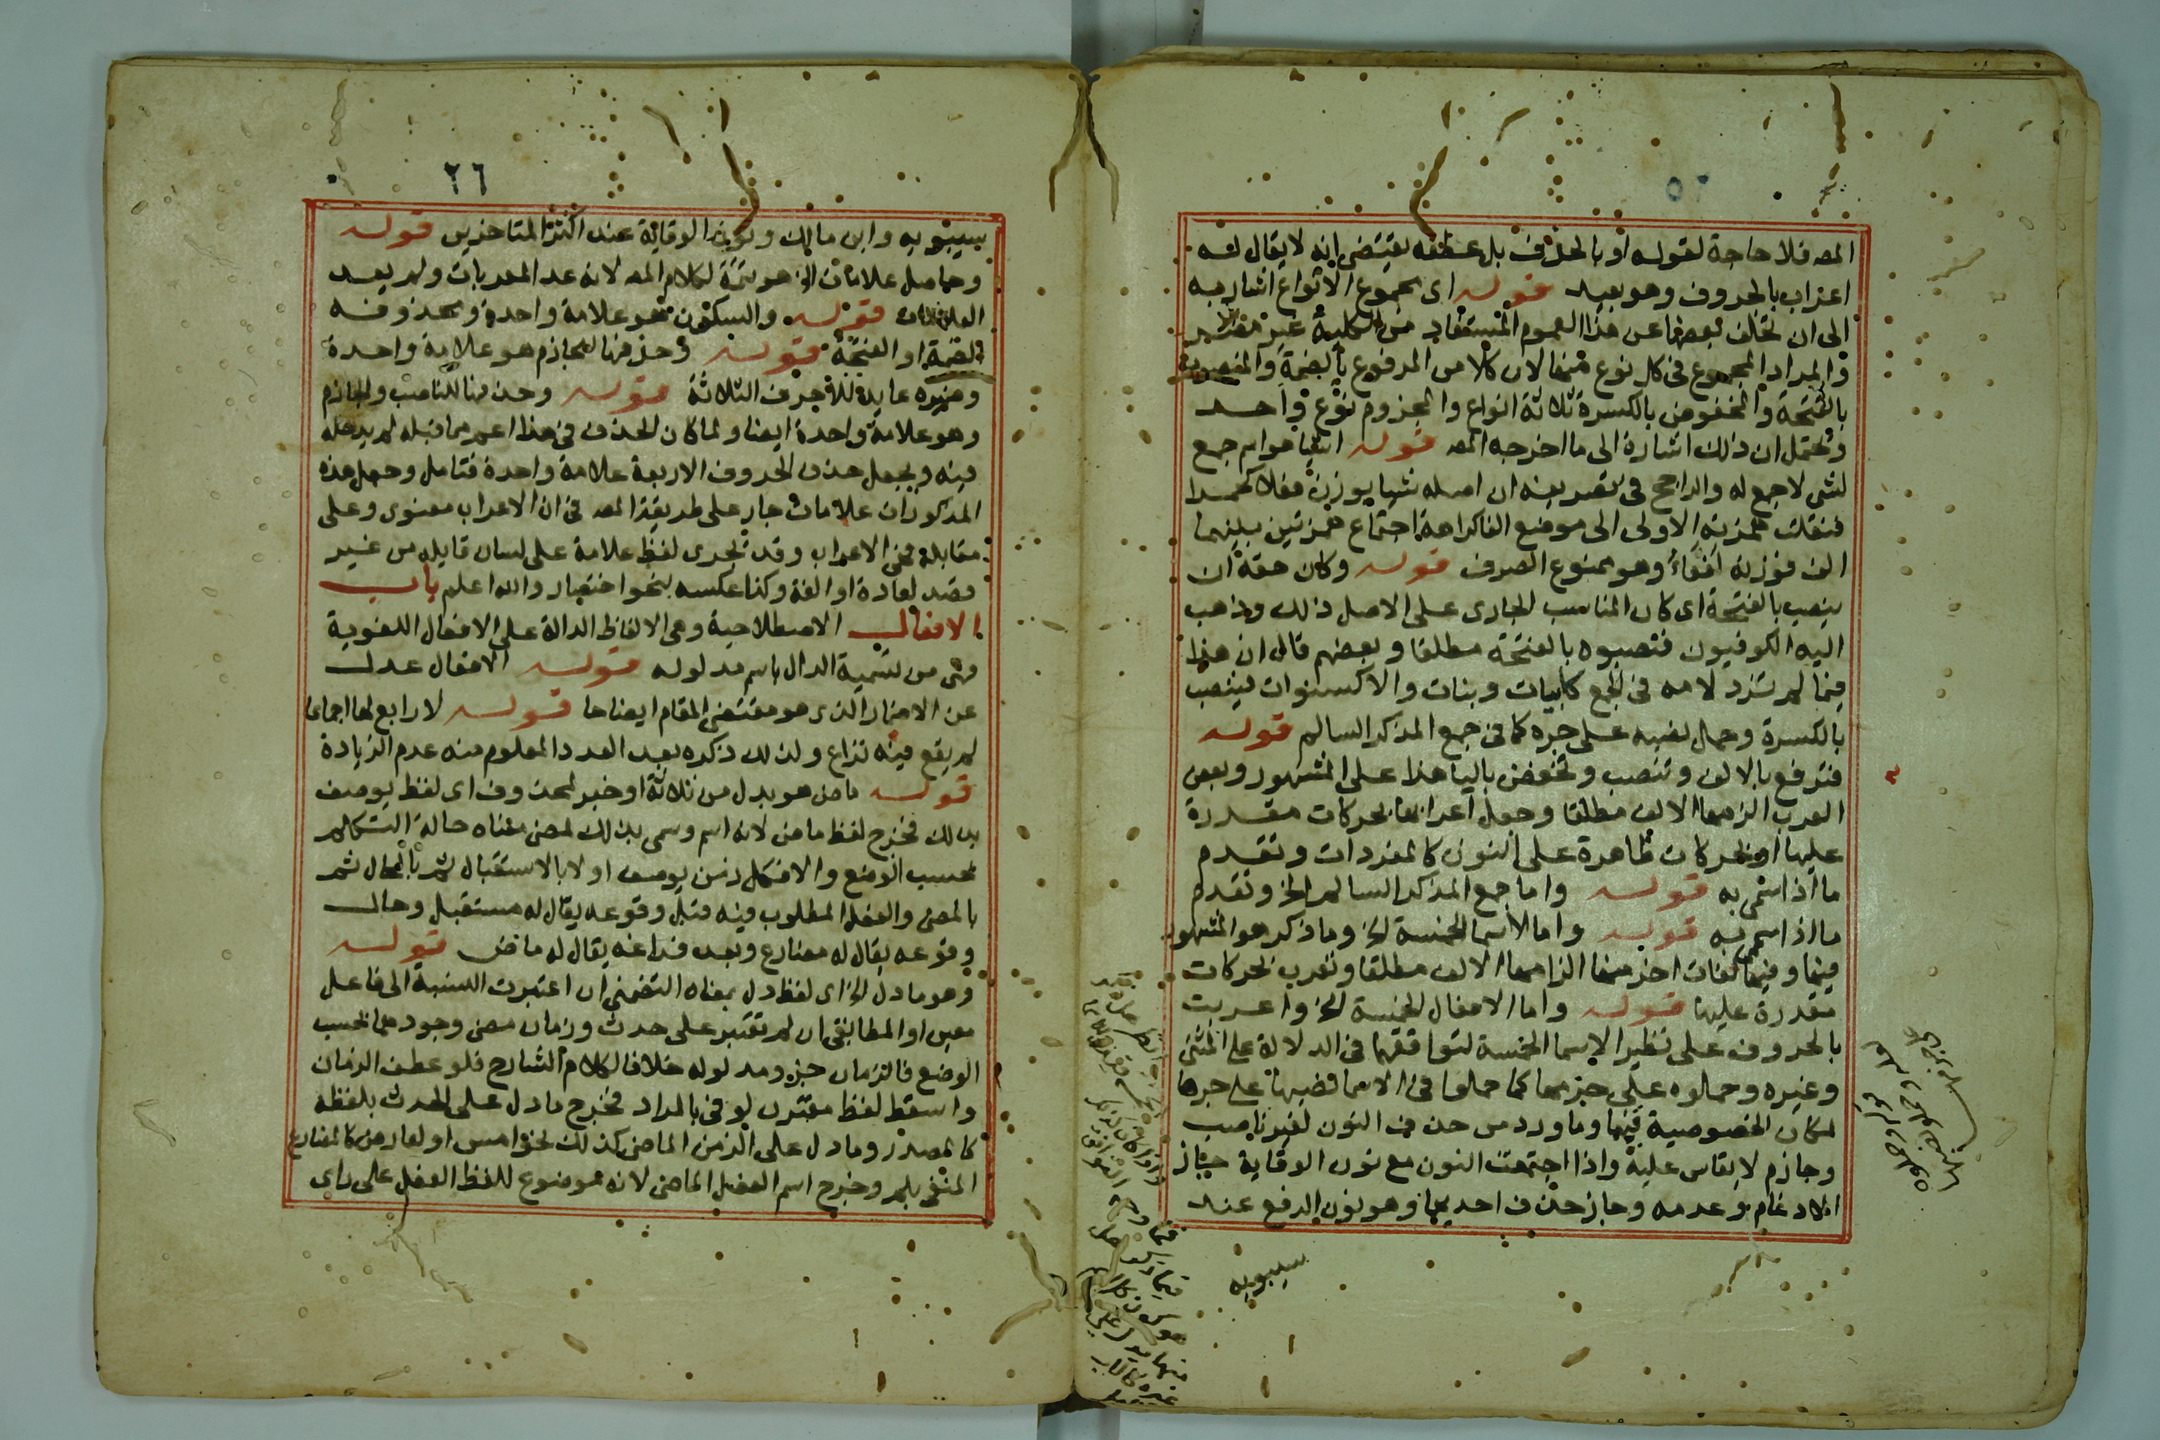 المص فلا حاجة لقوله او بالحذف بل عطفه يقتضي انه لا يقال لـه
اعراب بالحروف وهو بعيد قوله اى مجموع الانواع اشار به
الى ان تخلف بعضها عن هذا العموم المستفاد من الكلية غير مضر
والمراد المجموع فى كل نوع منها لان كلا من المرفوع بالضمة والمنصوب
بالفتحة والمخفوض بالكسرة ثلاثة انواع والمجزوم نوع واحد
ويحتمل ان ذلك اشارة الى ما اخرجه المص قوله اشيا هو اسم جمع
لشى لا جمع له والراجح فى تصريفه ان اصله شيا بوزن فعلا كحمرا
فنقلت همزته الاولى الى موضع الفا كراهة اجتماع همزتين بينهما
الف فوزنه لفعاء وهو ممنوع الصرف قوله وكان حقه ان
ينصب بالفتحة اى كان المناسب الجارى على الاصل ذلك وذهب
اليه الكوفيون فنصبوه بالفتحة مطلقا وبعضهم قال ان هذا
فيما لم ترد لامه فى الجمع كابيات وبنات والا كسنوات فينصب
بالكسرة وحمل نصبه على جره كما فى جمع المذكر السالم قوله
فترفع بالالف وتنصب وتخفض باليا هذا على المشهور وبعض
العرب الزمها الالف مطلقا وجعل اعرابها بحركات مقدرة
عليها او بحركات ظاهرة على النون كالمفردات وتقدم
ما اذا سمى به قوله واما جمع المذكر السالم الخ وتقدم
ما اذا سمى به قوله واما الاسما الخمسة الخ وما ذكر هو المشهور
فيها وفيها لغات اخر منها الزامها الالف مطلقا وتعرب بحركات
مقدرة عليها قوله واما الافعال الخمسة الخ واعربت
بالحروف على نظير الاسما الخمسة لتوافقها فى الدلالة على المثنى
وغيره وحملوه على جزمها كما حملوا فى الاسما نصبها على جرها
لمكان الخصوصية فيها وما ورد من حذف النون لغير ناصب
وجازم لا يقاس عليه واذا اجتمعت النون مع نون الوقاية جاز
الادغام وعدمه وجاز حذف احديهما وهو نون الرفع عند
سيبويه
٢٦
سيبويه وابن مالك ونون الوقاية عند اكثر المتاخرين قوله
وحاصل علامات الخ هو تتمة لكلام المص لانه عد المعربات ولم يعد
العلامات قوله والسكون هو علامة واحدة ومحذوفه
الضمة او الفتحة قوله وحذفها للجازم هو علامة واحدة
وضميره عايد للاحرف الثلاثة قوله وحذفها للناصب والجازم
وهو علامة واحدة ايضا ولما كان الحذف فى هذا اعم مما قبله لم يدخله
فيه ويجعل حذف الحروف الاربعة علامة واحدة فتامل وجعل هذه
المذكورات علامات جار على طريقة المص فى ان الاعراب معنوى وعلى
مقابله فهى الاعراب وقد تجرى لفظ علامة على لسان قايله من غير
قصد لعادة او الفة وكذا عكسه بنحو اختصار والله اعلم باب
الافعال الاصطلاحية وهى الالفاظ الدالة على الافعال اللغوية
فهى من تسمية الدال باسم مدلوله قوله الافعال عدل
عن الاضمار الذى هو مقتضى المقام ايضاحا قوله لا رابع لها اجماعا
لم يقع فيه نزاع ولذلك ذكره بعد العدد المعلوم منه عدم الزيادة
قوله ماض هو بدل من ثلاثة او خبر لمحذوف اى لفظ يوصف
بذلك فخرج لفظ ماض لانه اسم وسمى بذلك لمضى معناه حالة التكلم
بحسب الوضع والا فكل زمن يوصف اولا بالاستقبال ثم بالحال ثم
بالمضى والفعل المطلوب فيه قبل وقوعه يقال له مستقبل وحال
وقوعه يقال له مضارع وبعد فراغه يقال له ماض قوله
وهو ما دل الخ اى لفظ دل بمعناه التضمنى ان اعتبرت النسبة الى فاعل
معين او المطابقى ان لم تعتبر على حدث وزمان مضى وجودهما بحسب
الوضع فالزمان جزء مدلوله خلافا لكلام الشارح فلو عطف الزمان
واسقط لفظ مقترن لوفى بالمراد فخرج ما دل على الحدث بلفظه
كالمصدر وما دل على الزمن الماضى كذلك نحو امس او لعارض كالمضارع
المنفى بلم وخرج اسم الفعل الماضى لانه موضوع للفظ الفعل على راى